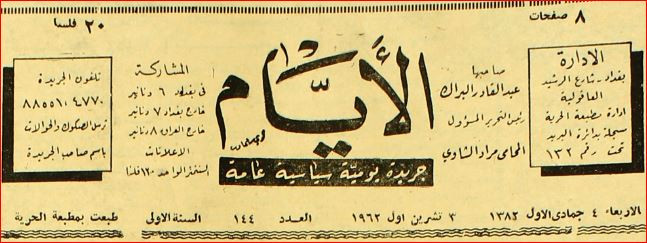 ٨ صفحات
٢٠ فلسا
الادارة
بغداد - شارع الرشيد
العاقولية
ادارة مطبعة الحرية
مسجلة بدائرة البريد
تحت رقم ١٣٢
صاحبها
عبد القادر البراك
رئيس التحرير المسؤول
المحامي مراد الشاوي
الأيام
جريدة يومية سياسية عامة
المشاركة
في بغداد ٦ دنانير
خارج بغداد ٧ دنانير
خارج العراق ٨ دنانير
الاعلانات
السنتمتر الواحد ١٢٠ فلسا
تلفون الجريدة
ترسل الصكوك والحوالات
باسم صاحب الجريدة
الاربعاء ٤ جمادى الاول ١٣٨٢
٣ تشرين اول ١٩٦٢
العدد ١٤٤
السنة الاولى
طبعت بمطبعة الحرية